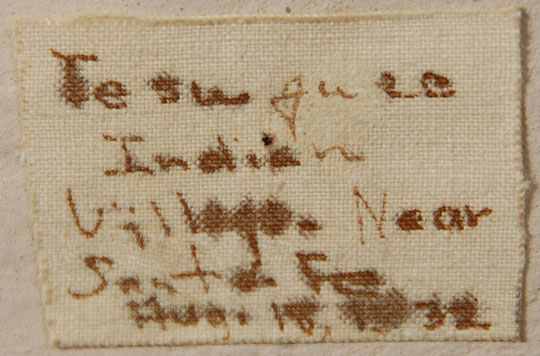 Tesuquee
Indian
Village. Near
Santa Fe
Aug. 18, 32